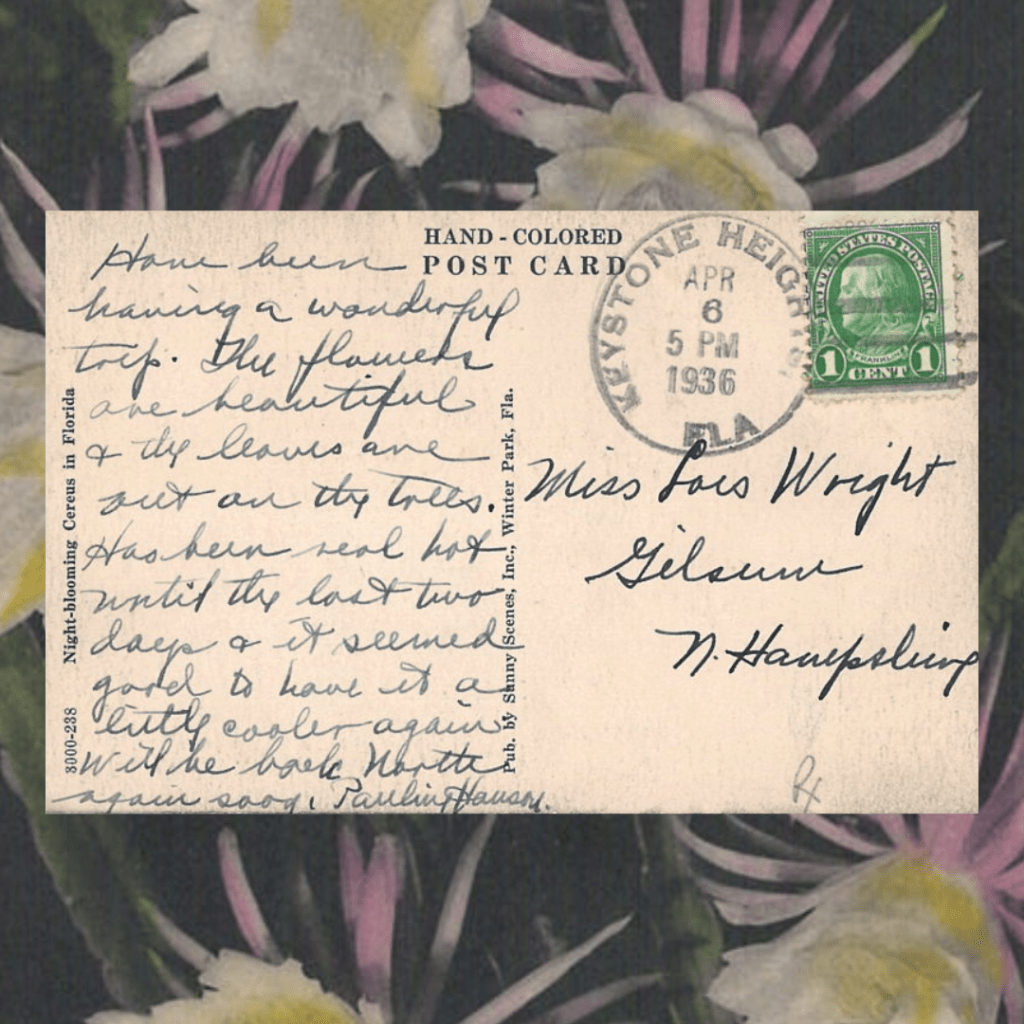 HAND-COLORED
POST CARD
Have been
having a wonderful
trip. The flowers
are beautiful
& the leaves are
out on the trees.
Has been real hot
until the last two
days & it seemed
good to have it a
little cooler again
Will be back North
again soon. Pauline Hanson.
Night-blooming Cereus in Florida
3000-238
Pub. by Sunny Scenes, Inc., Winter Park, Fla.
KEYSTONE HEIGHTS,
APR
6
5 PM
1936
FLA
UNITED STATES POSTAGE
FRANKLIN
1 CENT 1
Miss Lois Wright
Gilsum
N. Hampshire